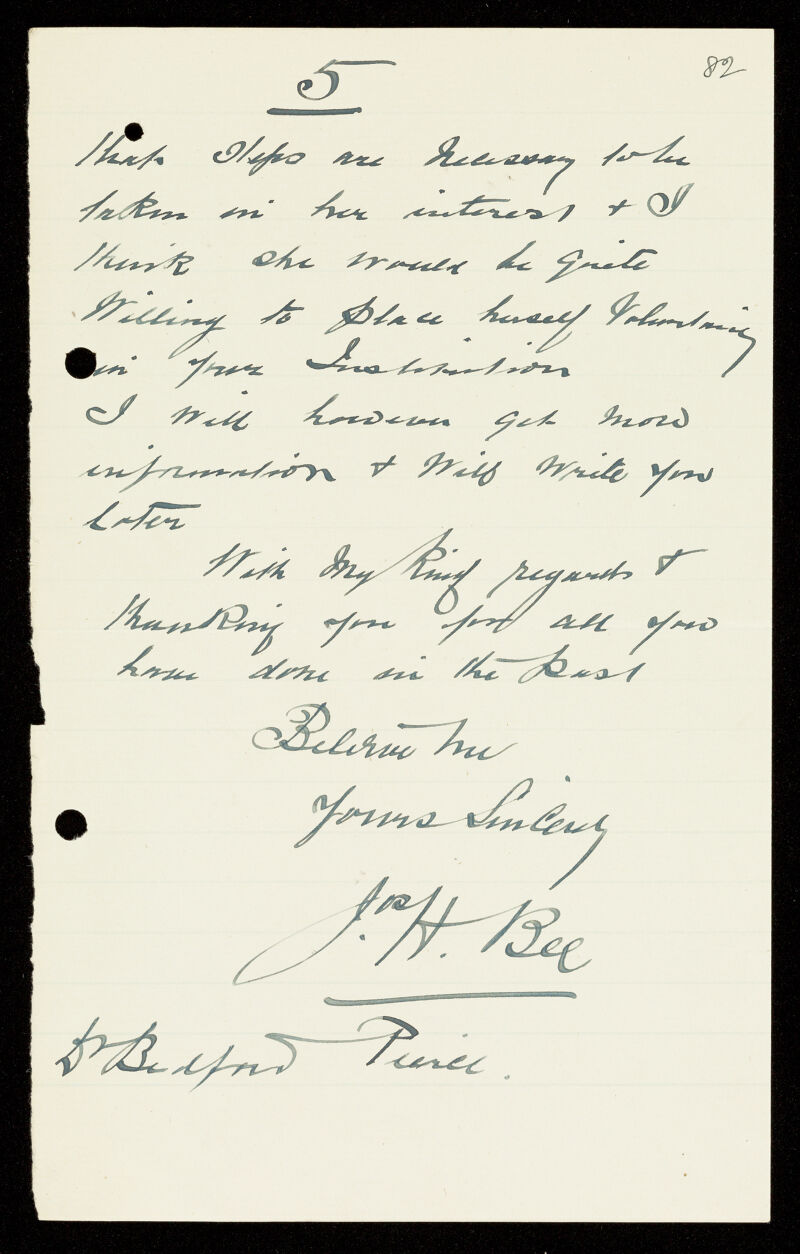 5
82
that steps are Necessary to be
taken in her interest & I
think she would be Quite
Willing to place herself Voluntarily
in your Institution
I will however get more
information & Will Write you
Later
With My Kind regards &
thanking you for all you
have done in the past
Believe me
Yours Sincerely
Jos H. Bee
Dr Bedford Pierce.